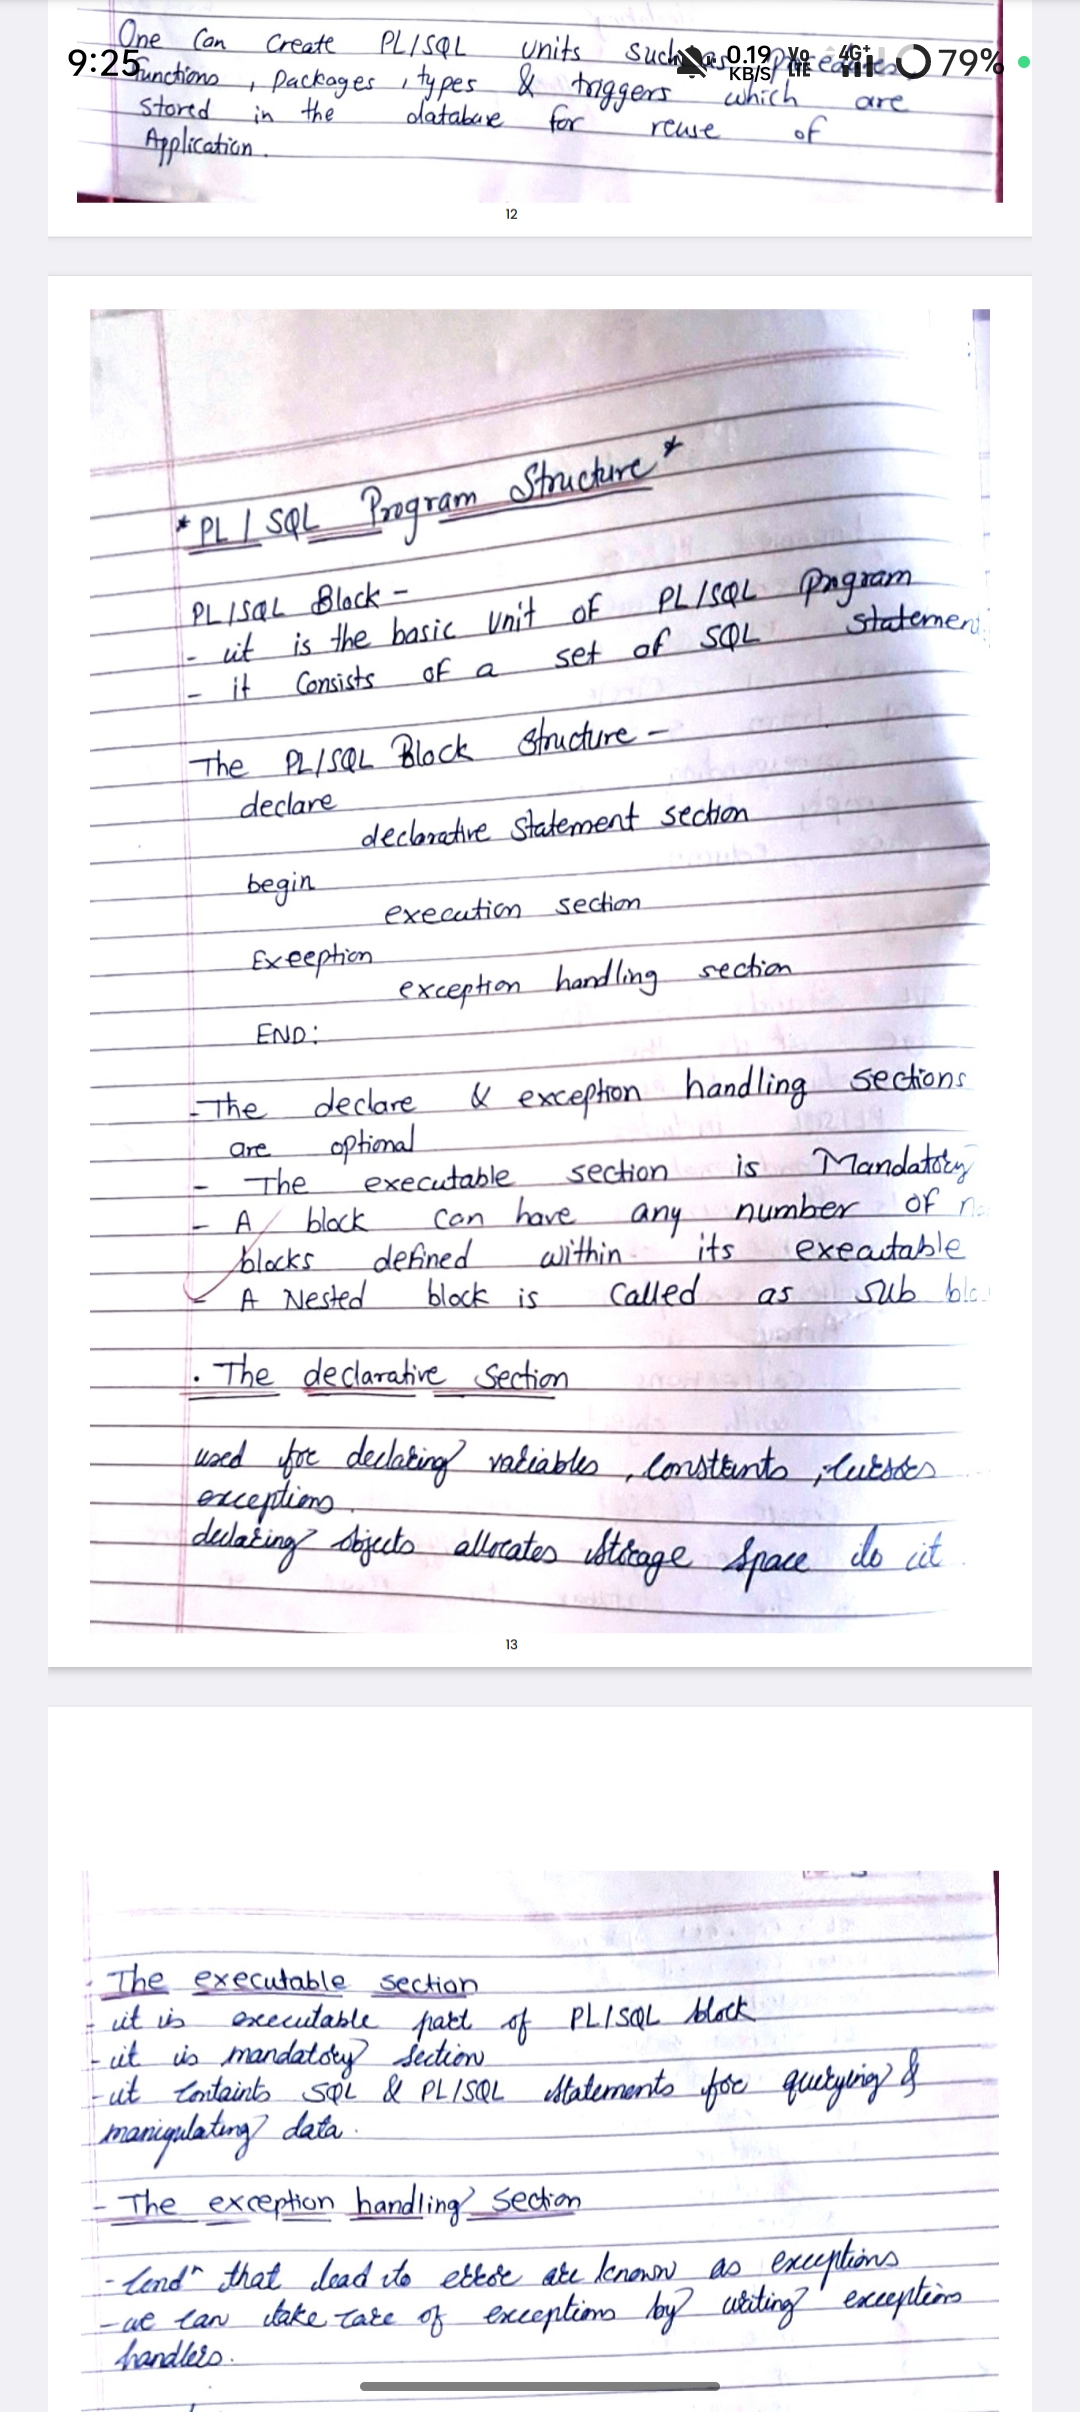 One Can Create PL/SQL units such as
9:25 0.19 KB/S Vo LTE 4G+ 79%
functions, packages, types & triggers which are
stored in the database for reuse of
Application.
12
* PL / SQL Program Structure *
PL/SQL Block -
- it is the basic unit of PL/SQL Program
- it Consists of a set of SQL statemen
The PL/SQL Block structure -
declare
declarative statement section
begin
execution section
Exeeption
exception handling section
END;
- The declare & exception handling sections
are optional
- The executable section is Mandatory
- A block can have any number of
blocks defined within its executable
- A Nested block is called as sub
. The declarative section
used for declaring variables, constants, cursors
exceptions.
declaring objects allocates storage space to it.
. The executable section
- it is executable part of PL/SQL block
- it is mandatory section
- it containts SQL & PL/SQL statements for querying &
manipulating data.
- The exception handling section
- Condn that lead to error are known as exceptions
- we can take care of exceptions by writing exception
handlers.
13